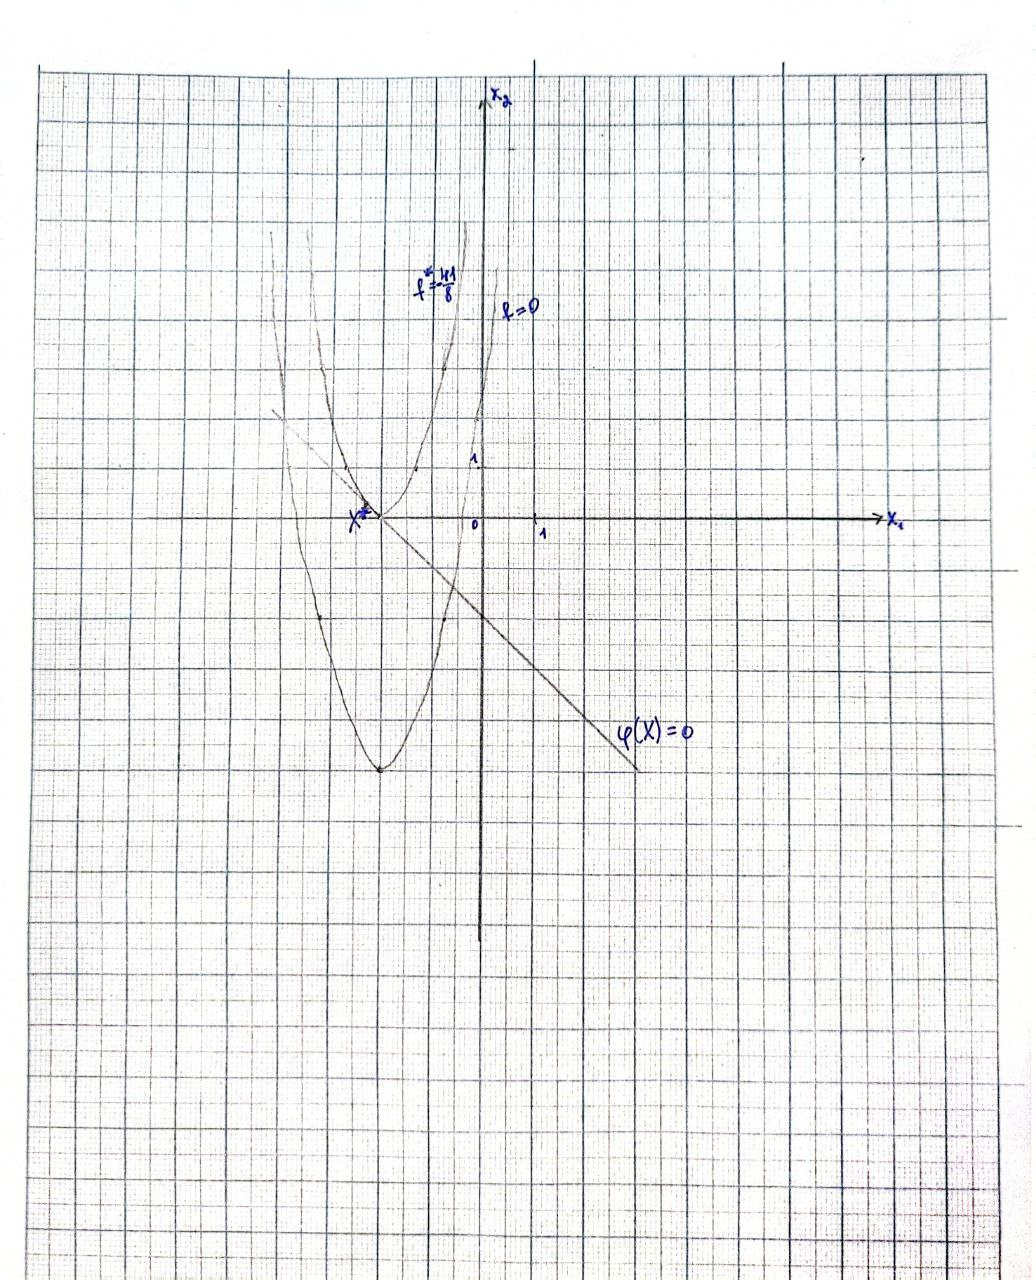 x₂
f*=-41/8
f=0
1
X*
0
1
x₁
φ(X)=0